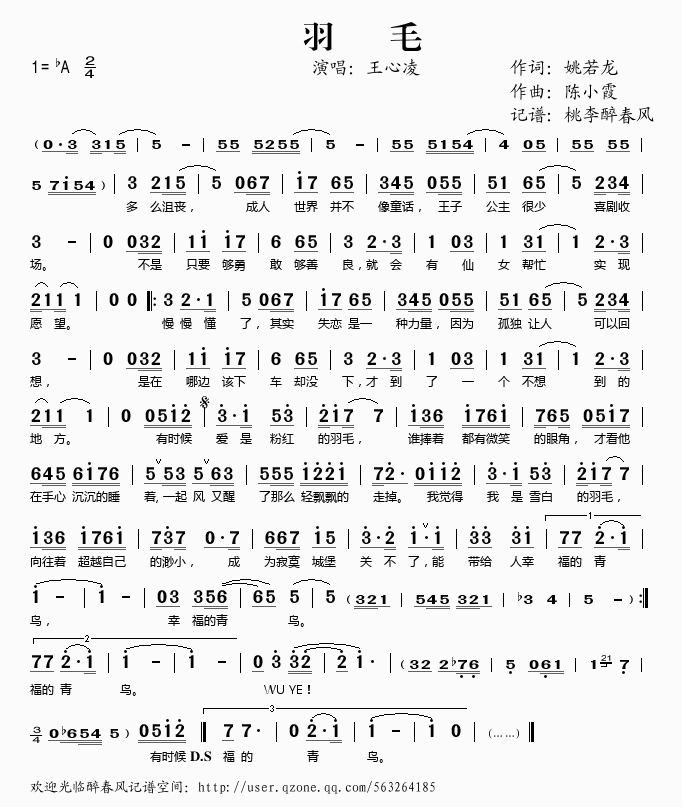 羽 毛
1= ♭A 2/4 演唱：王心凌 作词：姚若龙
作曲：陈小霞
记谱：桃李醉春风
( 0·3 315 | 5 - | 55 5255 | 5 - | 55 5154 | 4 05 | 55 55 |
5 7154 ) | 3 215 | 5 067 | 17 65 | 345 055 | 51 65 | 5 234 |
多 么沮丧， 成人 世界 并不 像童话， 王子 公主 很少 喜剧收
3 - | 0 032 | 11 17 | 6 65 | 3 2·3 | 1 03 | 1 31 | 1 2·3 |
场。 不是 只要 够勇 敢 够善 良，就 会 有 仙 女 帮忙 实 现
211 1 | 0 0 ‖: 3 2·1 | 5 067 | 17 65 | 345 055 | 51 65 | 5 234 |
愿 望。 慢 慢 懂 了，其实 失恋 是一 种力量，因为 孤独 让人 可以回
3 - | 0 032 | 11 17 | 6 65 | 3 2·3 | 1 03 | 1 31 | 1 2·3 |
想， 是在 哪边 该下 车 却没 下，才 到 了 一 个 不想 到 的
211 1 | 0 0512 | 3·1 53 | 217 7 | 136 1761 | 765 0517 |
地 方。 有时候 爱 是 粉红 的羽毛， 谁捧着 都有微笑 的眼角，才看他
645 6176 | 5 53 5 63 | 555 1221 | 72· 0112 | 3·1 53 | 217 7 |
在手心 沉沉的睡 着，一起 风 又醒 了那么 轻飘飘的 走掉。 我觉得 我 是 雪白 的羽毛，
136 1761 | 737 0·7 | 667 15 | 3·2 1·1 | 33 31 | 77 2·1 |
1
向往着 超越自己 的渺小， 成 为寂寞 城堡 关 不 了，能 带给 人幸 福的 青
1 - | 1 - | 03 356 | 65 5 | 5 ( 321 | 545 321 | ♭3 4 | 5 - ) :‖
鸟， 幸 福的青 鸟。
2
77 2·1 | 1 - | 1 - | 0 3 32 | 2 1· | ( 32 2♭76 | 5 061 | 1 21 7 |
福的 青 鸟。 WU YE！
3
3/4 0♭654 5 ) 0512 ‖ 7 7· | 0 2·1 | 1 - | 1 0 | (……) ‖
有时候 D.S 福 的 青 鸟。
欢迎光临醉春风记谱空间：http://user.qzone.qq.com/563264185